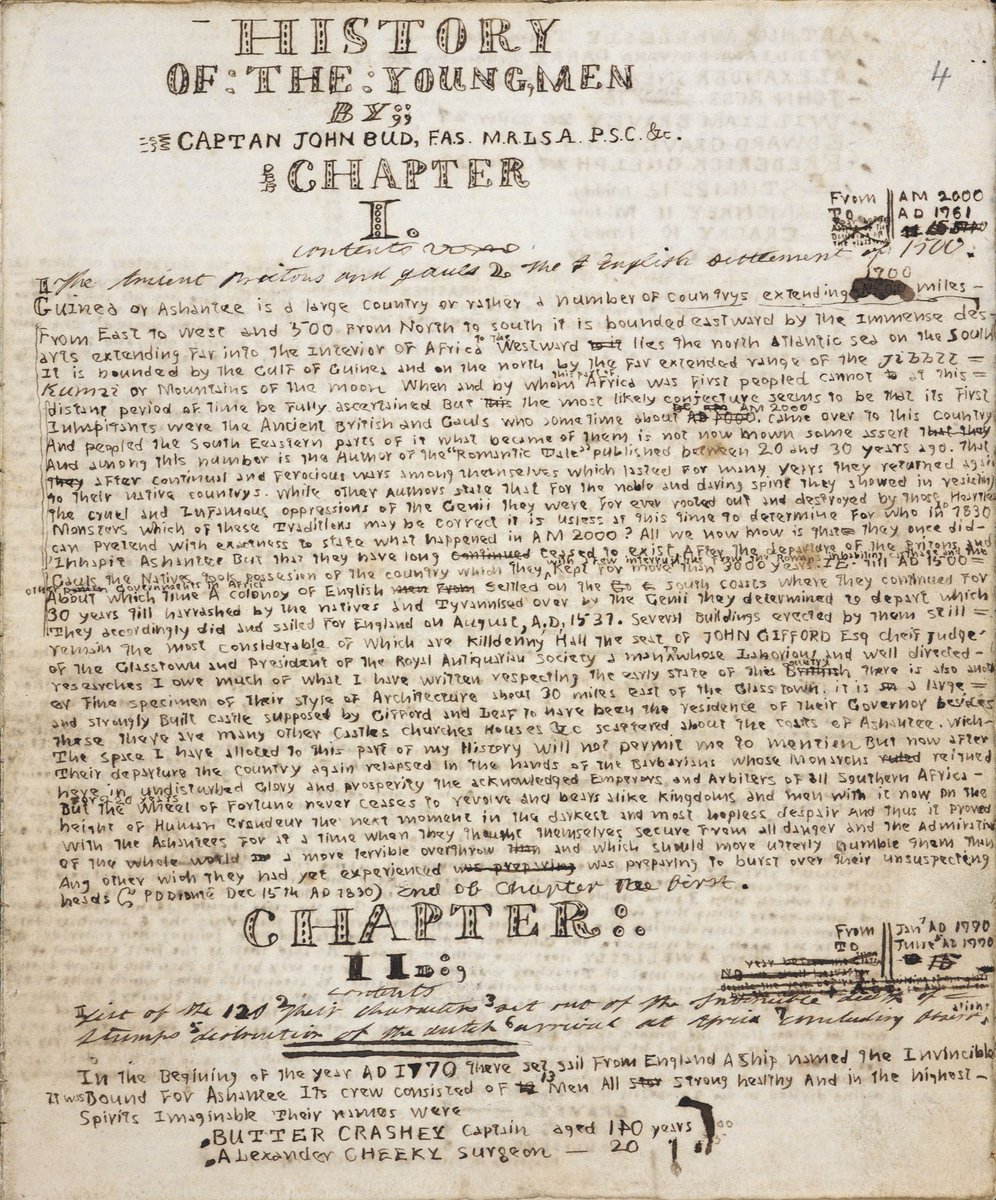 HISTORY
OF: THE: YOUNG, MEN
BY;;
CAPTAN JOHN BUD, F.A.S. M.R.L.S.A. P.S.C. &c.
4
CHAPTER
I.
From AM 2000
To AD 1761
contents
1 The Ancient Britons and gauls 2 the English settlement of 1500.
1700
Guinea or Ashantee is a large country or rather a number of countrys extending miles—
From East to West and 500 From North to south it is bounded eastward by the Immense des-
arts extending far into the Interior of Africa to the Westward to it lies the north atlantic sea on the South
It is bounded by the Gulf of Guinea and on the north by the far extended range of the Jibbel =
Kumri or Mountains of the moon When and by whom this part of Africa was first peopled cannot at this =
distant period of time be fully ascertained But this the most likely conjecture seems to be that its First
Inhapitants were the Ancient British and Gauls who sometime about AM 2000 came over to this Country
And peopled the South Eeastern parts of it what became of them is not now known some assert that they
And among this number is the Author of the "Romantic Tale" published between 20 and 30 years ago. that
they after continual and ferocious wars among themselves which lasted for many years they returned again
to their native countrys. While other Authors state that for the noble and daring spirit they showed in resisting
the cruel and Infamous oppressions of the Genii they were for ever rooted out and destroyed by those Hostile
Monsters Which of these Traditions may be correct it is usless at this time to determine For who in AD 1830
can pretend with exactness to state what happened in AM 2000? All we now know is that they once did—
Inhapit Ashantee But that they have long continued ceased to exist After the departure of the Britons and
Gauls the Natives took possesion of the country which they kept for more than 3000 years. I.E. till AD 1500=
About which time A colonoy of English men from Settled on the south coasts where they continued for
30 years till harrashed by the natives and Tyrannised over by the Genii they determined to depart which
They accordingly did and sailed for England on August, A,D, 1537. Several Buildings erected by them still =
remain the most considerable of which are Killdenny Hall the seat of JOHN GIFFORD Esq cheif Judge-
of the Glasstown and President of the Royal Antiquarian Society a man to whose Laborious and well directed-
researches I owe much of what I have written respecting the early state of this country There is also anoth
er Fine specimen of their style of Architecture about 30 miles east of the Glasstown. it is a large =
and strongly Built castle supposed by Gifford and Leaf to have been the residence of their Governor besides
these there are many other Castles churches Houses &c scattered about the coasts of Ashantee. wich-
The space I have alloted to this part of my History will not permit me to mention But now after
Their departure the Country again relapsed in the hands of the Barbarians whose Monarchs ruled reigned
here in undisturbed Glory and prosperity the acknowledged Emperors and Arbiters of all Southern Africa—
But the Wheel of Fortune never ceases to revolve and bears alike kingdoms and men with it now on the
height of Human Grandeur the next moment in the darkest and most hopless despair And thus it proved
With the Ashantees For at a time when they thought themselves secure from all danger and the Admiration
of the whole world a more terrible overthrow and which should more utterly humble them than
Any other wich they had yet experienced was preparing was preparing to burst over their unsuspecting
heads PB Bronte Dec 15th AD 1830) End of Chapter the first.
CHAPTER:.
II:;
From Jany AD 1770
To June AD 1770
contents
1 list of the 12s 2 Their characters 3 set out of the Invincible 4 death of
Stumps 5 destruction of the dutch 6 arrival at Africa 7 concluding observations.
In the Begining of the year AD 1770 there set sail From England A ship named the Invincible
it was Bound For Ashantee Its crew consisted of 13 Men All strong healthy And in the highest—
Spirits Imaginable Their names were
BUTTER CRASHEY Captain aged 140 years
ALexander CHEEKY surgeon — 20